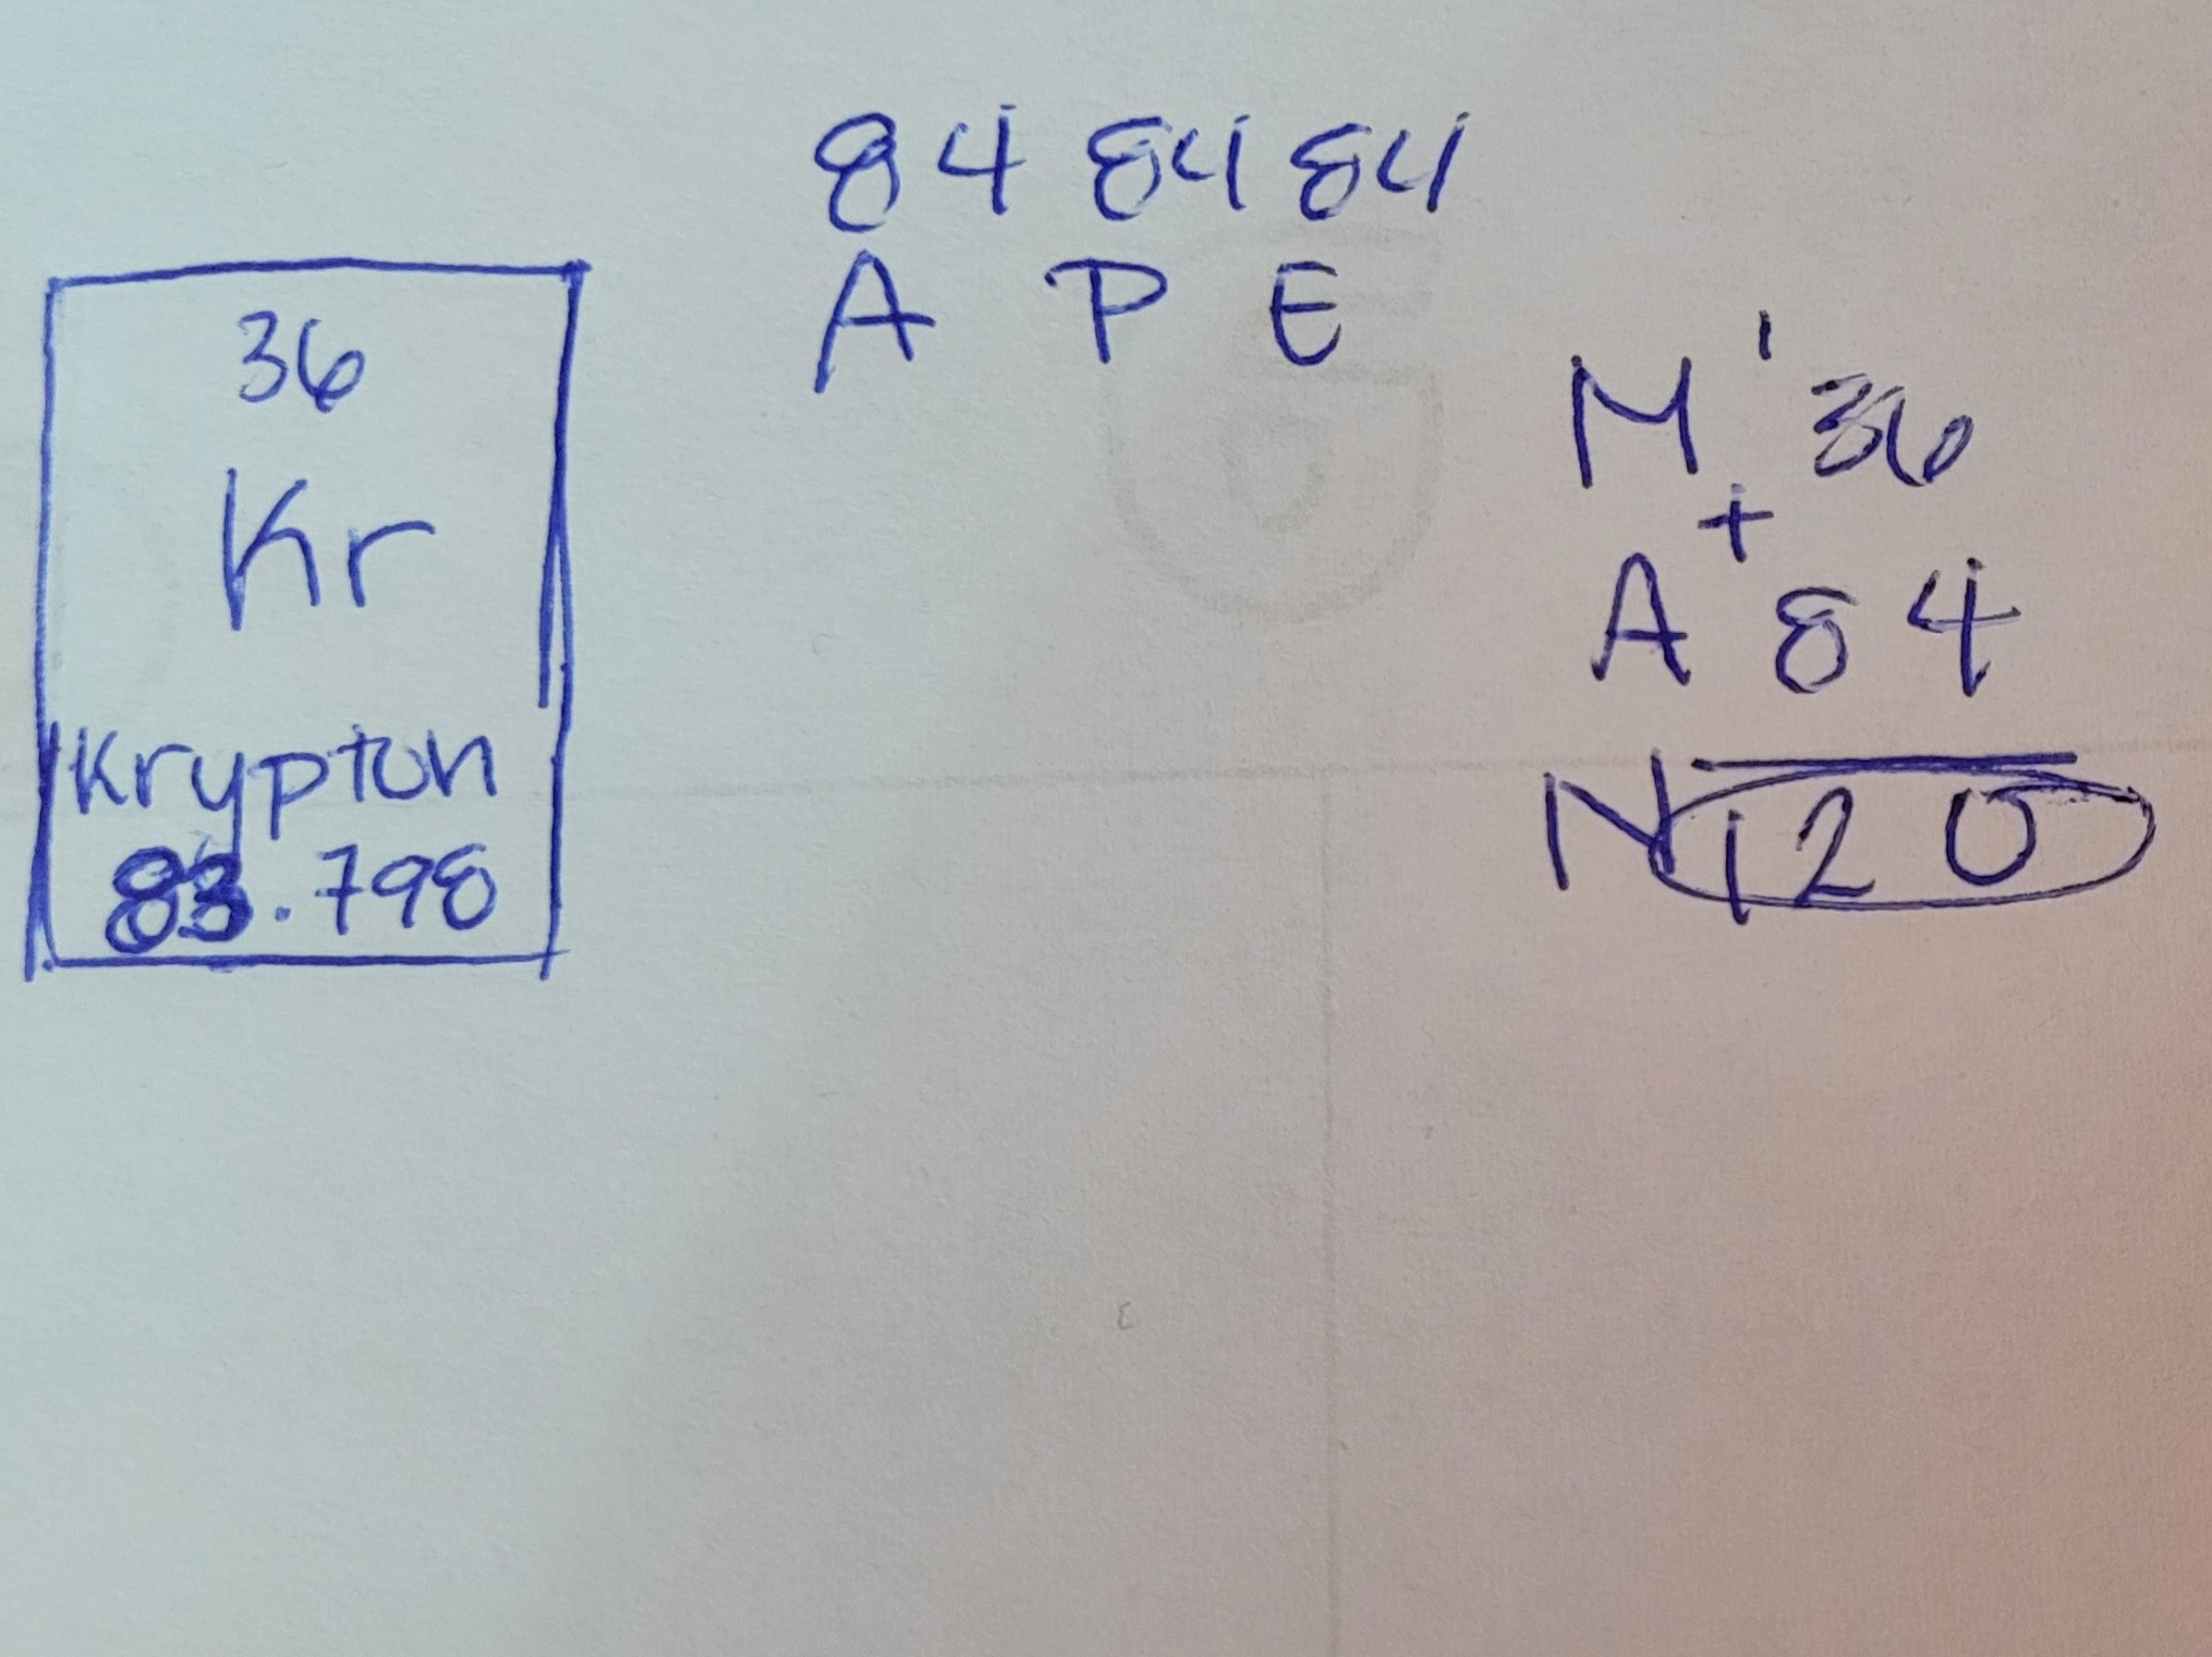 36
Kr
Krypton
83.798
84 84 84
A P E
1
M 36
+
A 84
N 120